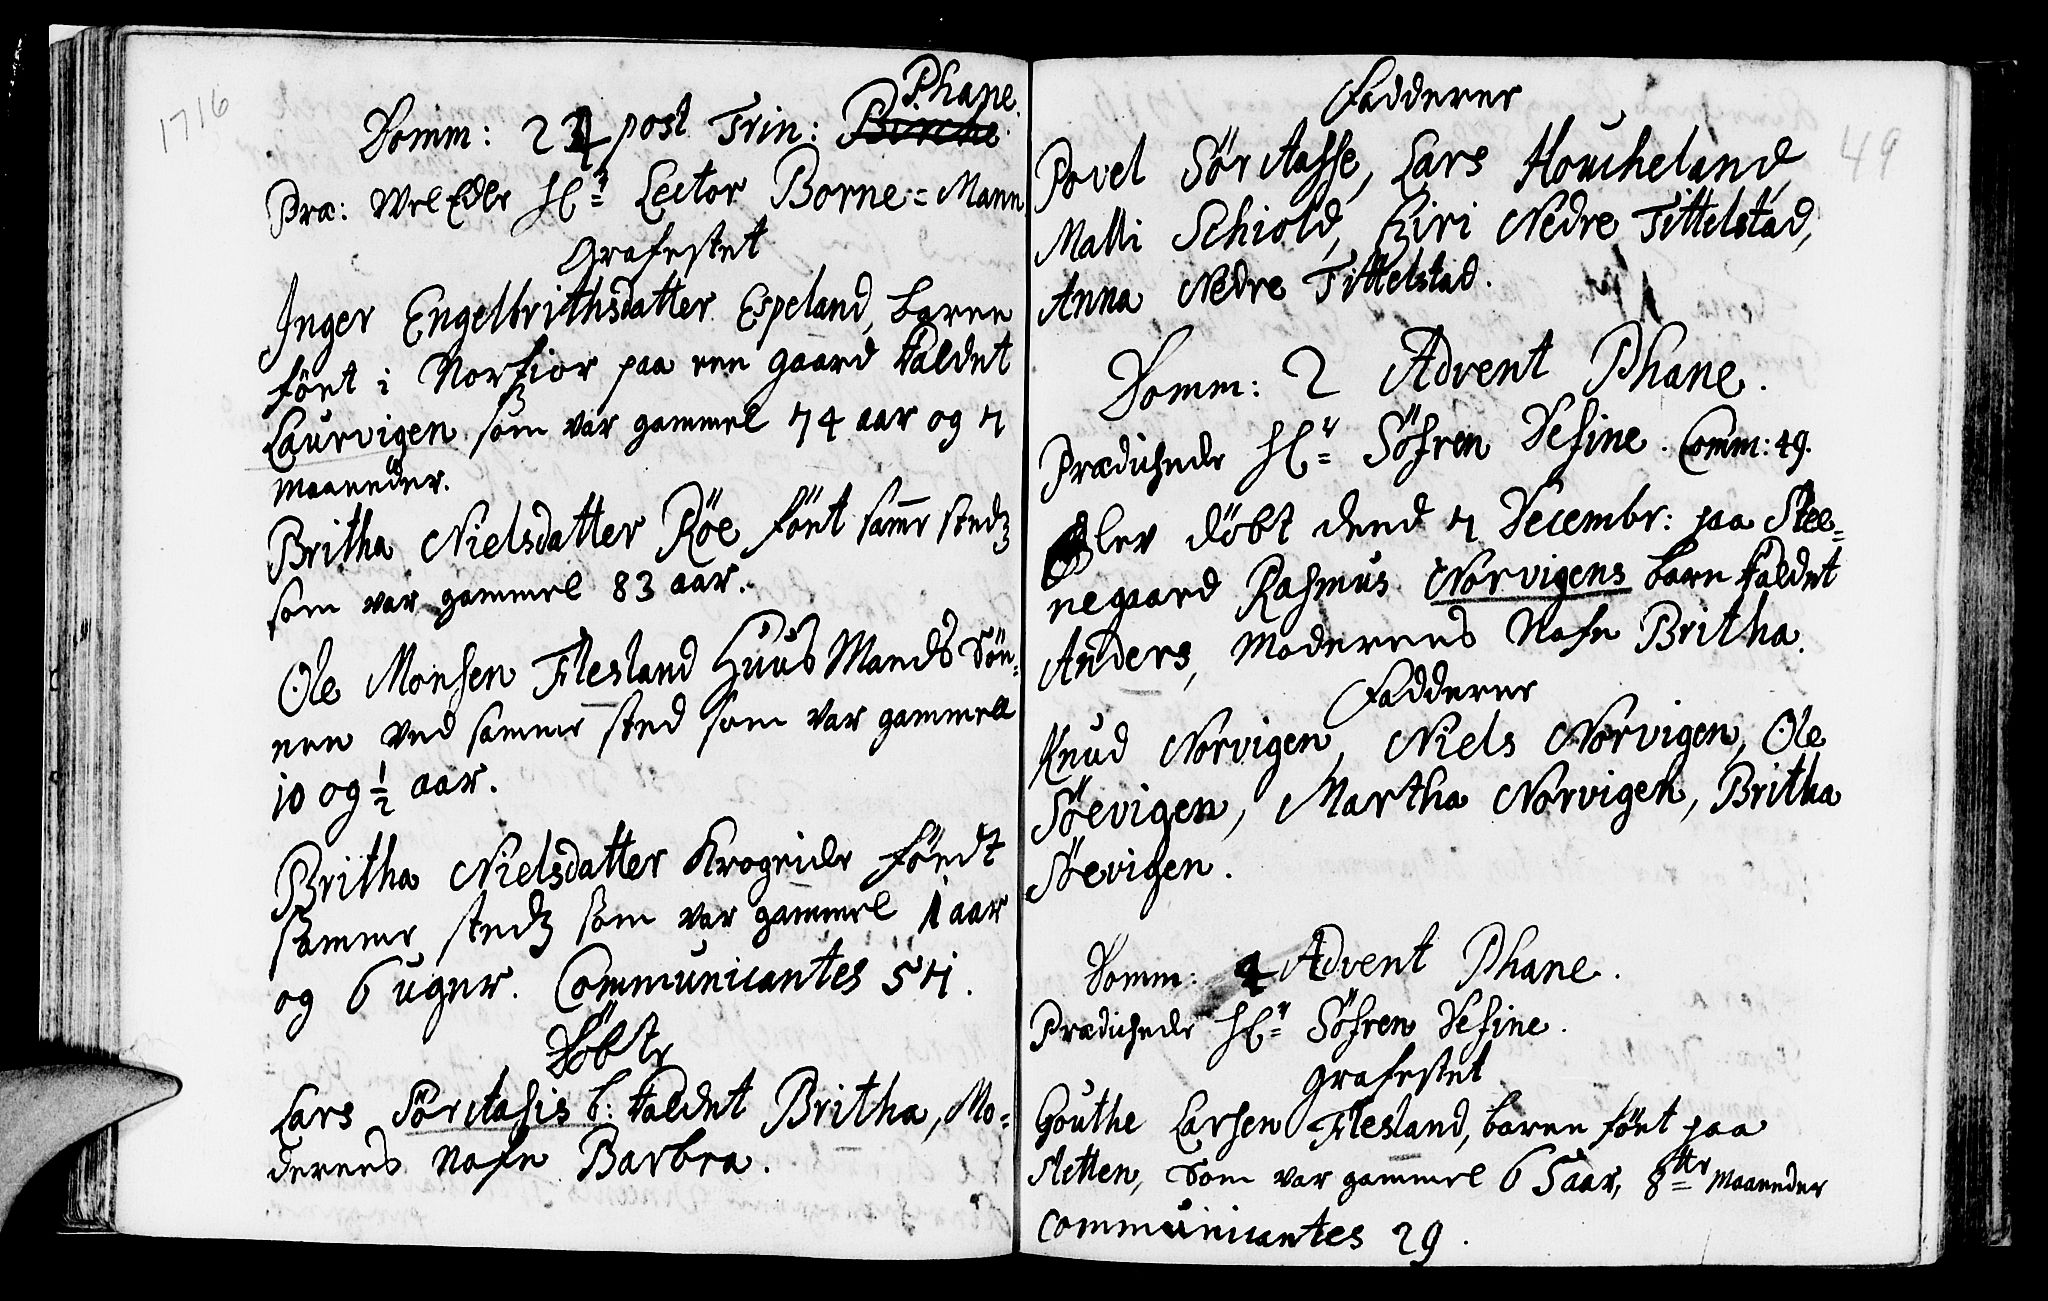 1716
Phane.
Domm: 24 post Trin: Birche.
Præ: WelEdle Hr: Lector Borne-Mann
Grafestet
Inger Engelbrithsdatter Espeland, baren
fönt i Norfior paa een gaard kaldet
Laurvigen som var gammel 74 aar og 7
Maaneder.
Britha Nielsdatter Röe fönt samme stedz
som var gammel 83 aar.
Ole Monsen Flesland HuusMands Sön-
nen ved samme sted som var gammell
10 og ½ aar.
Britha Nielsdatter Krogeide föedt
samme stedz som var gammel 1 aar
og 6 uger. Communicantes 571.
Döbte
Lars Söritasis b: kaldet Britha, Mo-
derens Nafn Barbra.
49
Fadderer
Povel Söritasse, Lars Houcheland,
Malli Schiold, Siri Nedre Tittelstad,
Anna Nedre Tittelstad.
Domm: 2 Advent Phane.
Prædichede Hr: Söfren Desine. Comm: 49.
Blev döbt dend 7 Decembr: paa Stee-
negaard Rasmus Norvigens barn kaldet
Anders, Moderens Nafn Britha.
Fadderer
Knud Norvigen, Niels Norvigen, Ole
Söevigen, Martha Norvigen, Britha
Söevigen.
Domm: 4 Advent Phane.
Prædichede Hr: Söfren Desine.
Grafestet
Gouthe Larsen Flesland, baren föet paa
Sletten, som var gammel 65 aar, 8tte Maaneder
Communicantes 29.